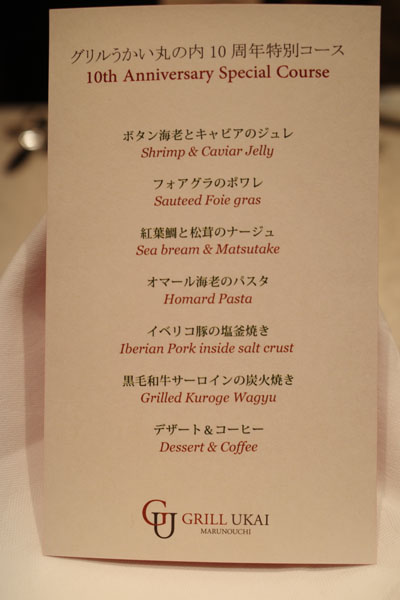 グリルうかい丸の内 10 周年特別コース
10th Anniversary Special Course
ボタン海老とキャビアのジュレ
Shrimp & Caviar Jelly
フォアグラのポワレ
Sauteed Foie gras
紅葉鯛と松茸のナージュ
Sea bream & Matsutake
オマール海老のパスタ
Homard Pasta
イベリコ豚の塩釜焼き
Iberian Pork inside salt crust
黒毛和牛サーロインの炭火焼き
Grilled Kuroge Wagyu
デザート＆コーヒー
Dessert & Coffee
GU GRILL UKAI
MARUNOUCHI